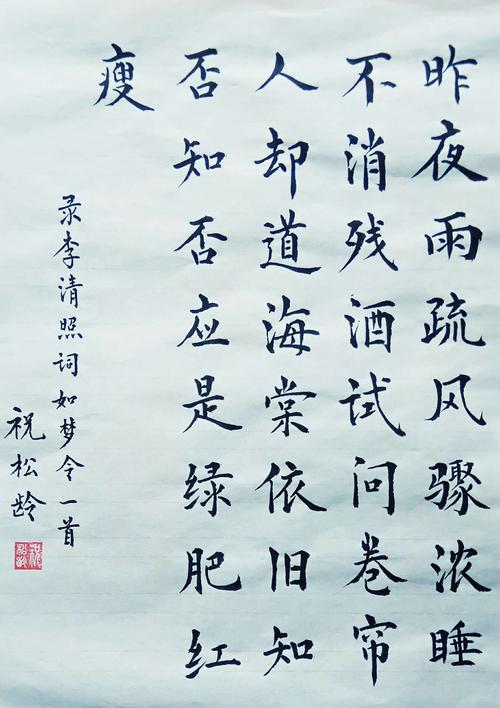 昨夜雨疏风骤浓睡
不消残酒试问卷帘
人却道海棠依旧知
否知否应是绿肥红
瘦
录李清照词如梦令一首
祝松龄
祝松龄